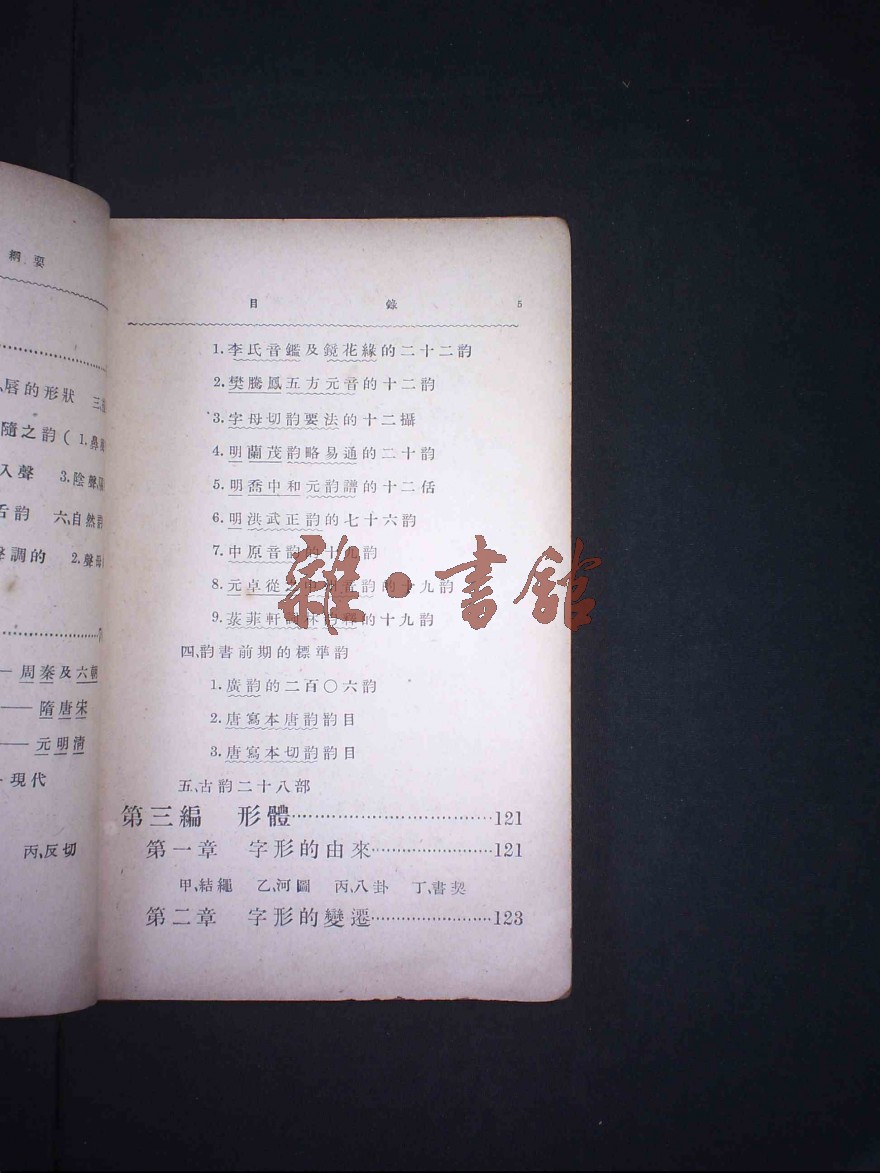 綱要
唇的形狀 三
隨之韵(1.鼻
入聲 3.陰聲
舌韵 六、自然
聲調的 2.聲母
周秦及六朝
隋唐宋
元明清
現代
丙、反切
目錄 5
1.李氏音鑑及鏡花緣的二十二韵
2.樊騰鳳五方元音的十二韵
3.字母切韵要法的十二攝
4.明蘭茂韵略易通的二十韵
5.明喬中和元韵譜的十二佸
6.明洪武正韵的七十六韵
7.中原音韵的十九韵
8.元卓從之中州音韵的十九韵
9.菉菲軒詞林韵釋的十九韵
四、韵書前期的標準韵
1.廣韵的二百〇六韵
2.唐寫本唐韵韵目
3.唐寫本切韵韵目
五、古韵二十八部
第三編 形體……121
第一章 字形的由來……121
甲、結繩 乙、河圖 丙、八卦 丁、書契
第二章 字形的變遷……123
雜·書館